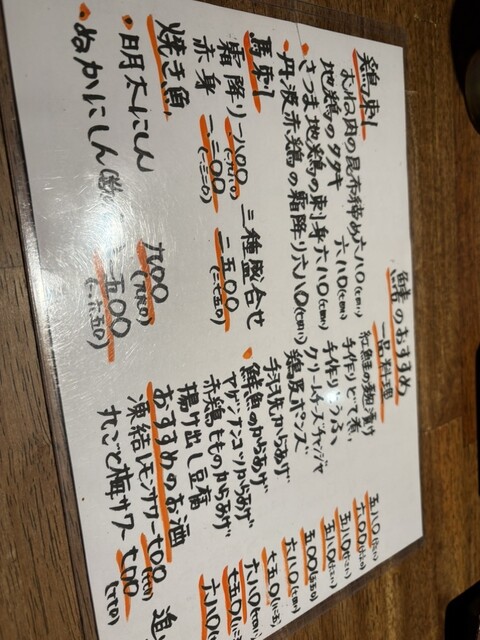 鱚のおすすめ
一品料理
紅鮭の麹漬け 五八〇
手作りどて煮 六〇〇
手作りとうふ 五八〇
クリームチーズチャンジャ 五八〇
鶏皮ポンズ 五〇〇
手羽先からあげ 六八〇
鮭魚のからあげ 七五〇
アゲナンコツからあげ 六八〇
赤鶏もものからあげ 七五〇
揚げ出し豆腐 六八〇
おすすめのお酒
凍結レモンサワー 七〇〇
丸ごと梅サワー 七〇〇
追
鶏刺
おね肉の昆布締め 六八〇
地鶏のタタキ 六八〇
さつま地鶏の刺身 六八〇
丹波赤鶏の霜降り 六八〇
馬刺
霜降り 一八〇〇 三種盛合せ
赤身 一二〇〇 二五〇〇
焼き魚
明太にしん 九〇〇
ぬかにしん 一五〇〇